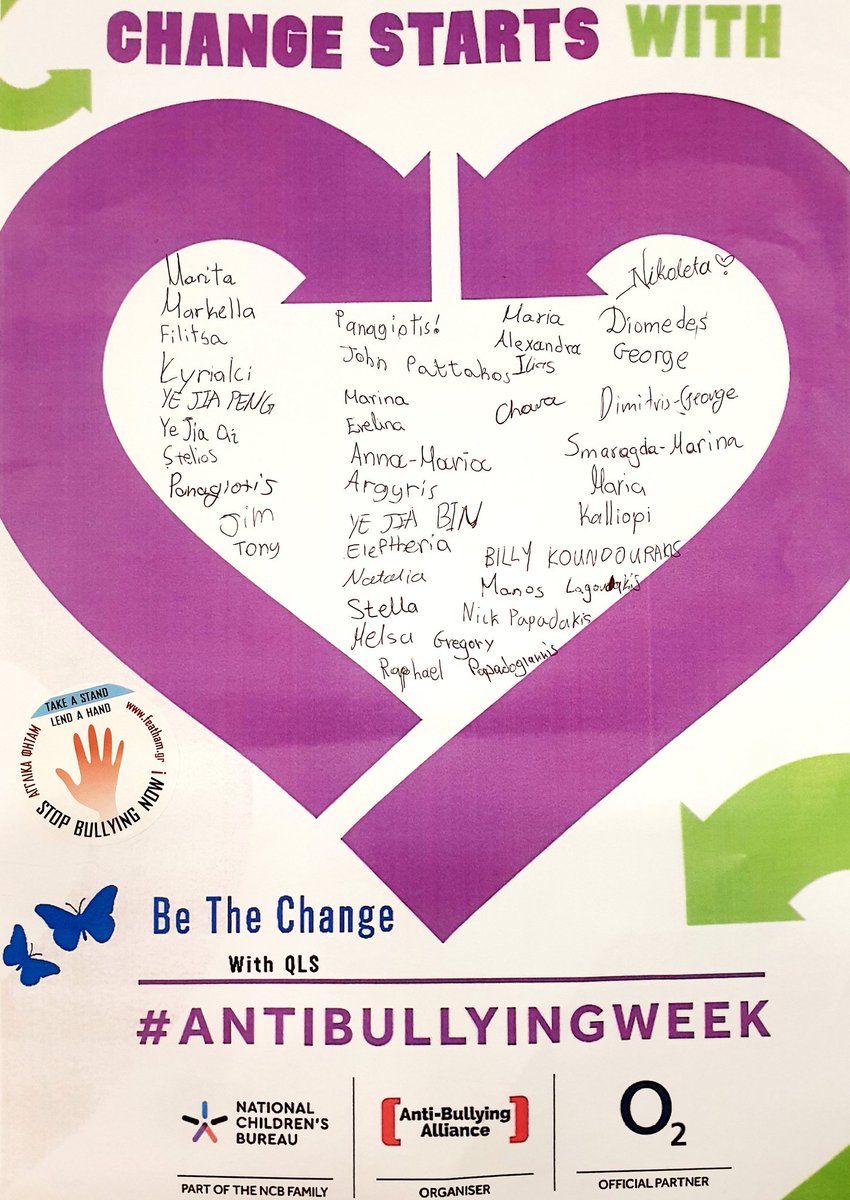 CHANGE STARTS WITH
Marita
Markella
Filitsa
Kyriaki
YE JIA PENG
Ye Jia Qi
Stelios
Panagiotis
Jim
Tony
Panagiotis!
John Pattakos
Marina
Evelina
Anna-Maria
Argyris
YE JIA BIN
Eleftheria
Natalia
Stella
Melsa Gregory
Raphael Papadogiannis
Maria
Alexandra
Ilias
Chara
Nikoleta
Diomedes
George
Dimitris-George
Smaragda-Marina
Maria
Kalliopi
BILLY KOUNDOURAKIS
Manos Lagoudakis
Nick Papadakis
TAKE A STAND
LEND A HAND
www.featham.gr
ΑΓΓΛΙΚΑ ΦΗΤΑΜ
STOP BULLYING NOW!
Be The Change
With QLS
#ANTIBULLYINGWEEK
NATIONAL
CHILDREN'S
BUREAU
PART OF THE NCB FAMILY
Anti-Bullying
Alliance
ORGANISER
O2
OFFICIAL PARTNER